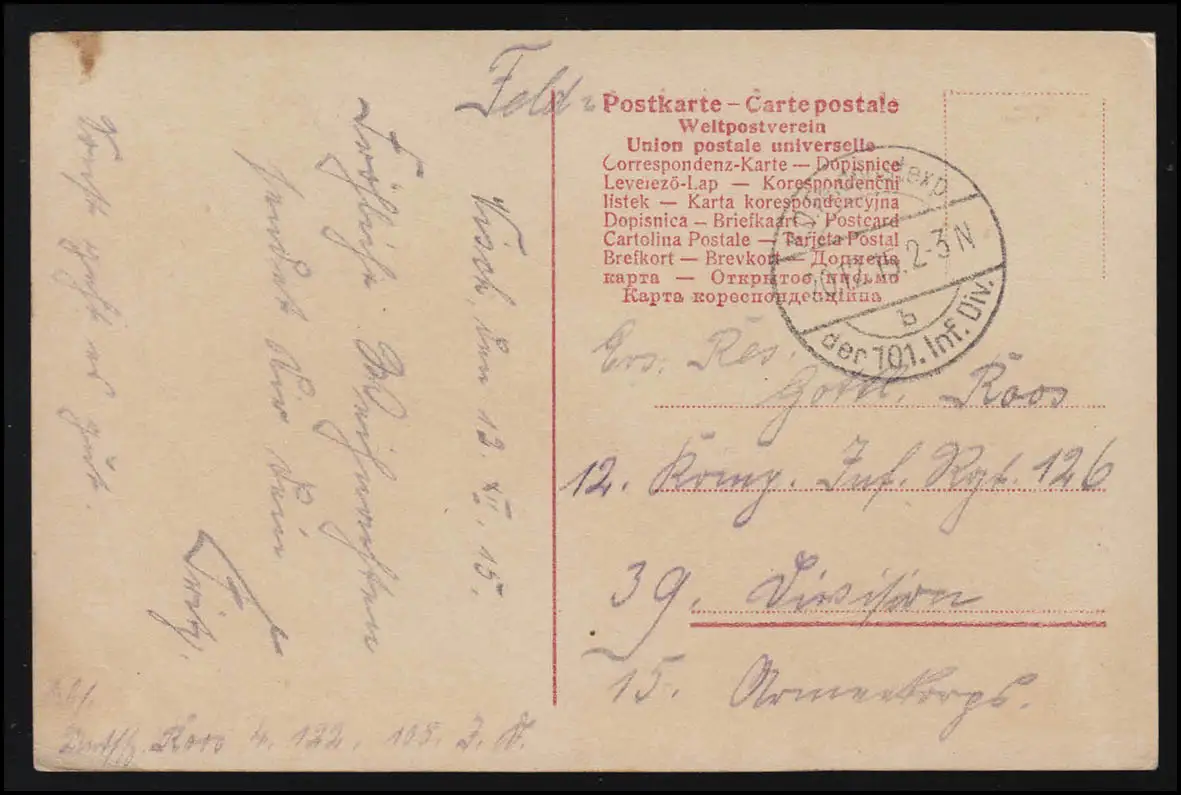 Feld = Postkarte – Carte postale
Weltpostverein
Union postale universelle
Correspondenz-Karte — Dopisnice
Levelező-Lap — Korespondenční
lístek — Karta korespondencyjna
Dopisnica — Briefkaart — Postcard
Cartolina Postale — Tarjeta Postal
Brefkort — Brevkort — Дописна
карта — Открытое письмо
Карта кореспонденційна
12.15. 2-3 N
b
der 101. Inf. Div.
Ers. Res.
Gottl. Roos
12. Komp. Inf. Rgt. 126
39. Division
15. Armeekorps.
den 12. XII. 15.
Fröhliche Weihnachten
sendet Dir Dein
Fritz.
Sonst geht es gut.
Roos 4. 122. 105. I. D.